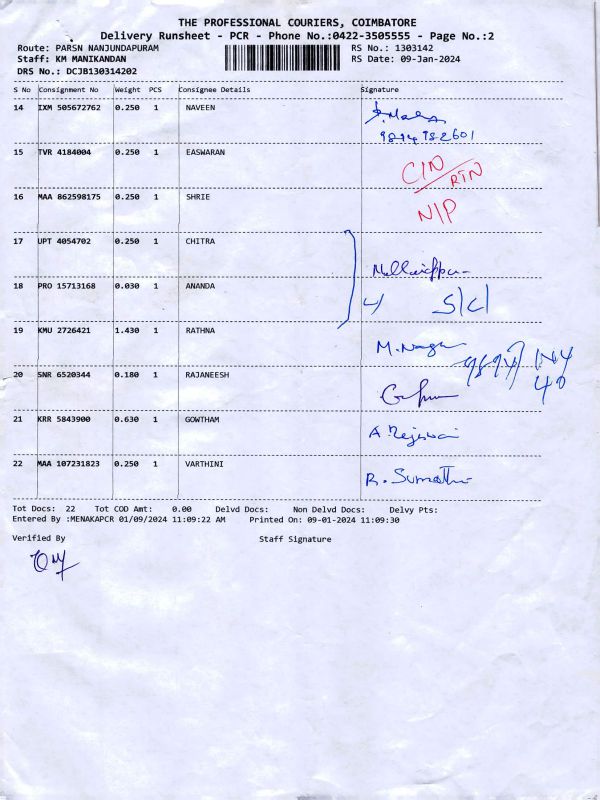 THE PROFESSIONAL COURIERS, COIMBATORE
Delivery Runsheet - PCR - Phone No.:0422-3505555 - Page No.:2
Route: PARSN NANJUNDAPURAM
RS No.: 1303142
Staff: KM MANIKANDAN
RS Date: 09-Jan-2024
DRS No.: DCJB130314202
S No Consignment No Weight PCS Consignee Details Signature
14 IXM 505672762 0.250 1 NAVEEN
15 TVR 4184004 0.250 1 EASWARAN
CIN
RTN
16 MAA 862598175 0.250 1 SHRIE
N/P
17 UPT 4054702 0.250 1 CHITRA
18 PRO 15713168 0.030 1 ANANDA
S/C/
19 KMU 2726421 1.430 1 RATHNA
M. Naga
20 SNR 6520344 0.180 1 RAJANEESH
21 KRR 5843900 0.630 1 GOWTHAM
22 MAA 107231823 0.250 1 VARTHINI
R. Sumathi
Tot Docs: 22 Tot COD Amt: 0.00 Delvd Docs: Non Delvd Docs: Delvy Pts:
Entered By :MENAKAPCR 01/09/2024 11:09:22 AM Printed On: 09-01-2024 11:09:30
Verified By Staff Signature